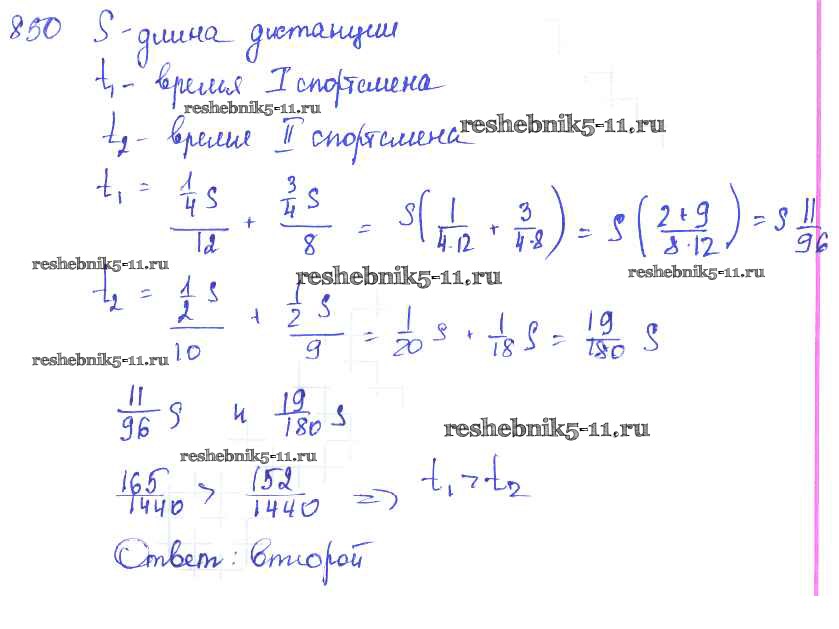 850 S - длина дистанции
t₁ - время I спортсмена
reshebnik5-11.ru
t₂ - время II спортсмена
reshebnik5-11.ru
t₁ = (1/4 S)/12 + (3/4 S)/8 = S(1/(4·12) + 3/(4·8)) = S((2+9)/(8·12)) = S 11/96
reshebnik5-11.ru
reshebnik5-11.ru
reshebnik5-11.ru
t₂ = (1/2 S)/10 + (1/2 S)/9 = 1/20 S + 1/18 S = 19/180 S
reshebnik5-11.ru
11/96 S и 19/180 S
reshebnik5-11.ru
reshebnik5-11.ru
165/1440 > 152/1440 => t₁ > t₂
Ответ: второй